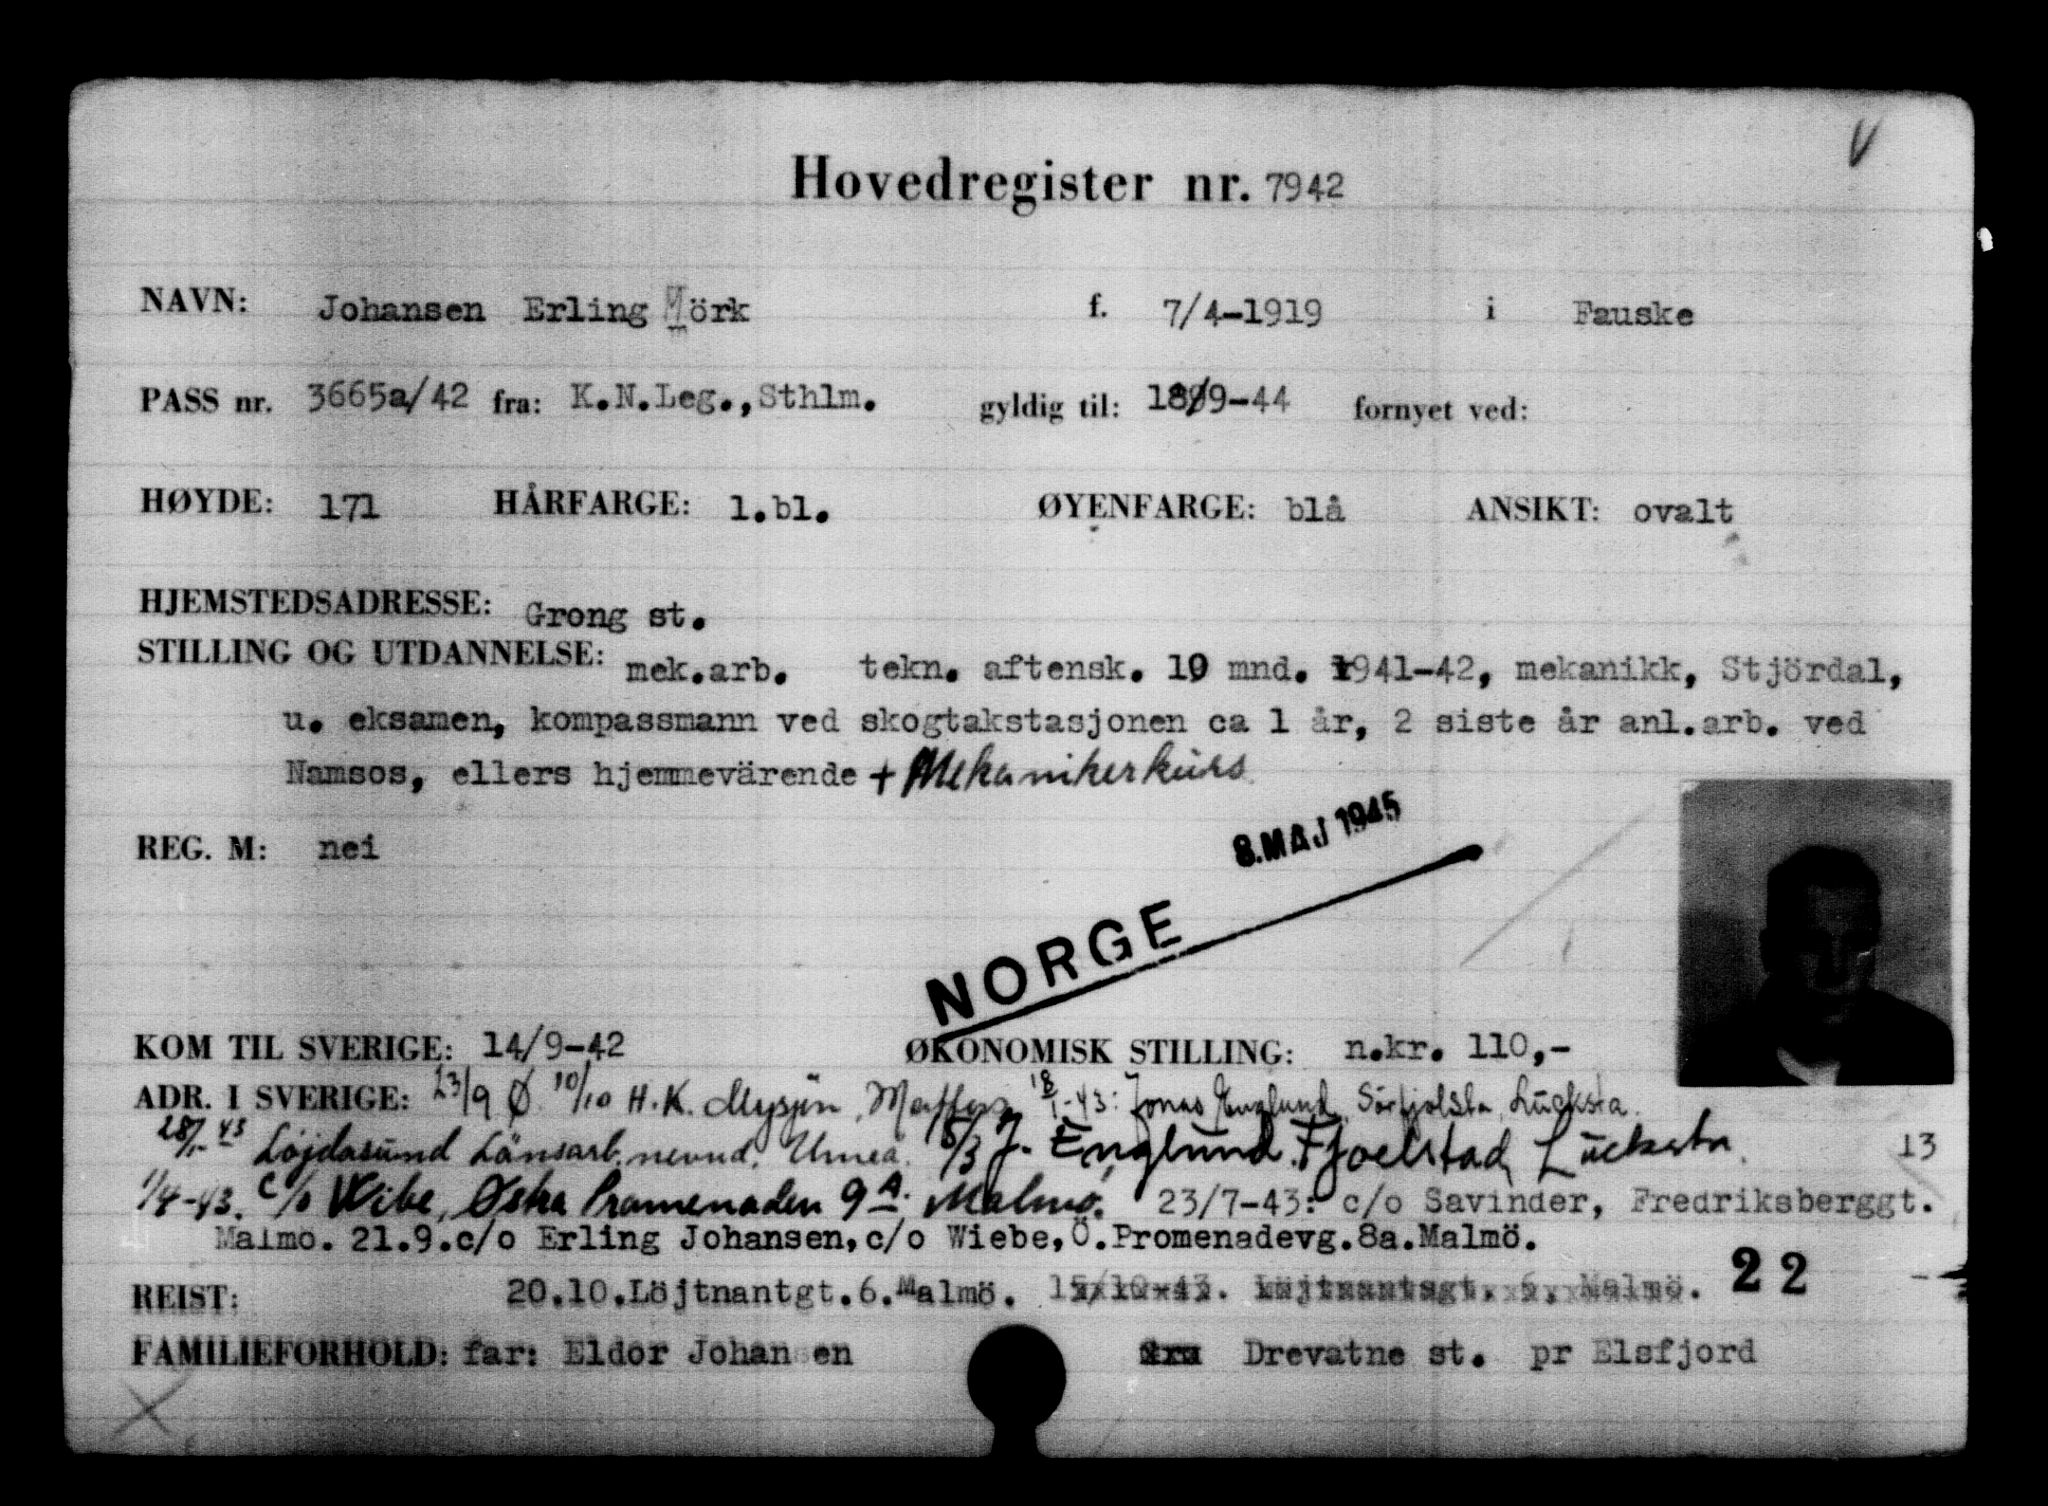 Hovedregister nr. 7942
NAVN: Johansen Erling Mörk f. 7/4-1919 i Fauske
PASS nr. 3665a/42 fra: K.N.Leg.,Sthlm. gyldig til: 18/9-44 fornyet ved:
HØYDE: 171 HÅRFARGE: l.bl. ØYENFARGE: blå ANSIKT: ovalt
HJEMSTEDSADRESSE: Grong st.
STILLING OG UTDANNELSE: mek.arb. tekn. aftensk. 10 mnd. 1941-42, mekanikk, Stjördal,
u. eksamen, kompassmann ved skogtakstasjonen ca 1 år, 2 siste år anl.arb. ved
Namsos, ellers hjemmevärende + Mekanikerkurs
REG. M: nei
8.MAJ 1945
NORGE
KOM TIL SVERIGE: 14/9-42 ØKONOMISK STILLING: n.kr. 110,-
ADR. I SVERIGE: 23/9 Ø 10/10 H.K. 18/1-43: Jonas Englund, Lucksta.
28/1-43 Löjdasund Länsarb.nevnd. Umeå. 8/3 J. Englund. Fjoelstad, Lucksta. 13
1/4-43. c/o Wibe, Østra Promenaden 9A. Malmö. 23/7-43: c/o Savinder, Fredriksberggt.
Malmö. 21.9.c/o Erling Johansen,c/o Wiebe,Ö.Promenadevg.8a.Malmö.
REIST: 20.10.Löjtnantgt.6.Malmö. 15/10-43. Löjtnantsgt. 6. Malmö. 22
FAMILIEFORHOLD: far: Eldor Johansen fra Drevatne st. pr Elsfjord